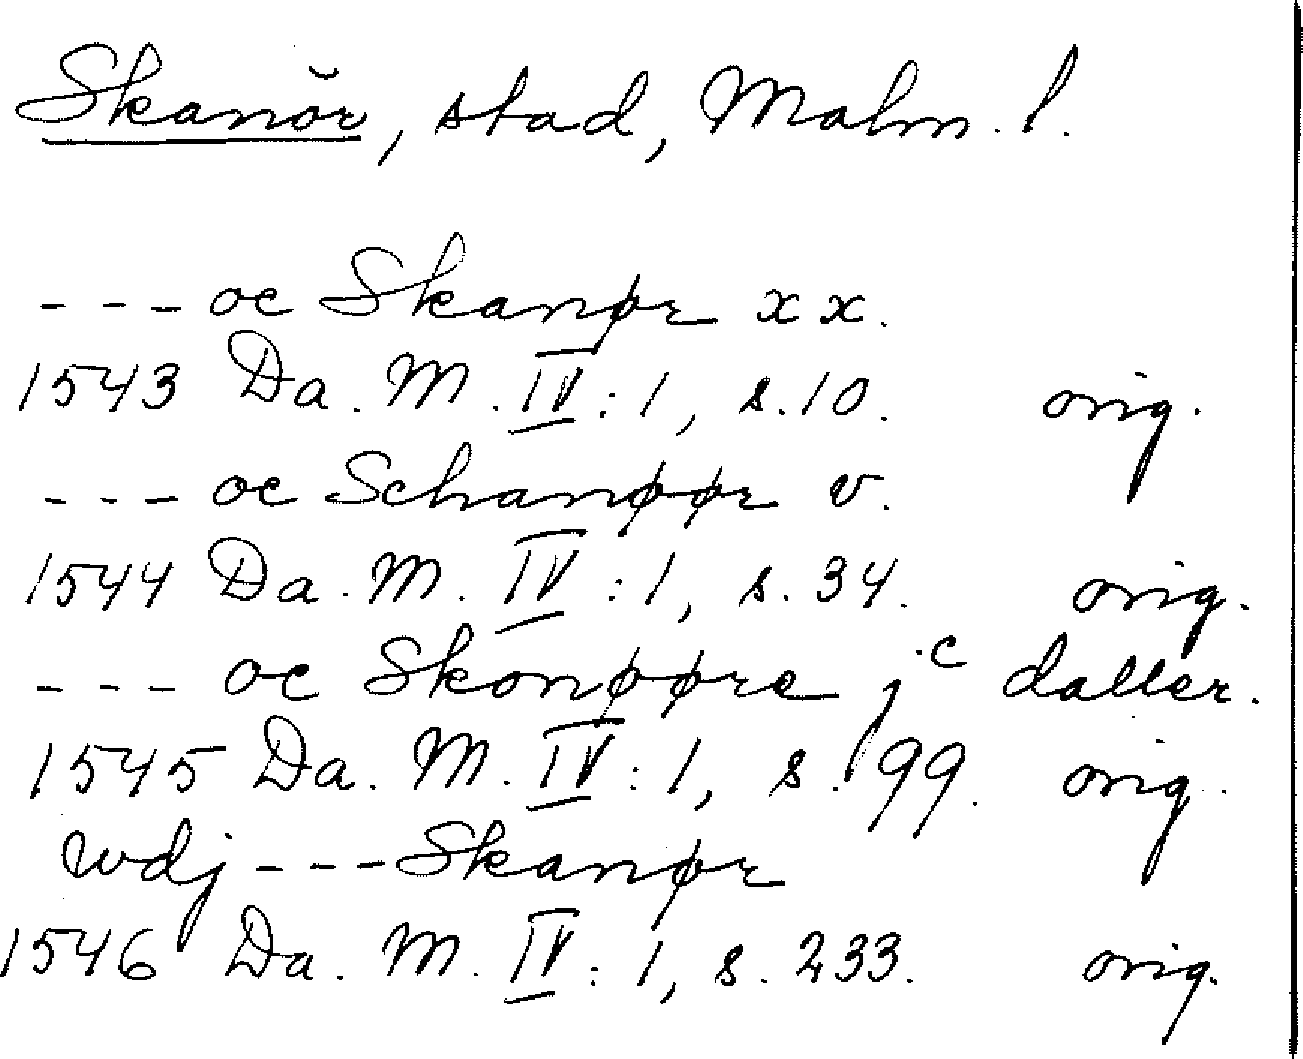 Skanör, stad, Malm. l.
--- oc Skanør xx.
1543 Da. M. IV:1, s.10. orig.
--- oc Schanøør v.
1544 Da. M. IV:1, s. 34. orig.
--- oc Skonøøre jc daller.
1545 Da. M. IV:1, s. 199. orig.
wdj --- Skanør
1546 Da. M. IV:1, s. 233. orig.